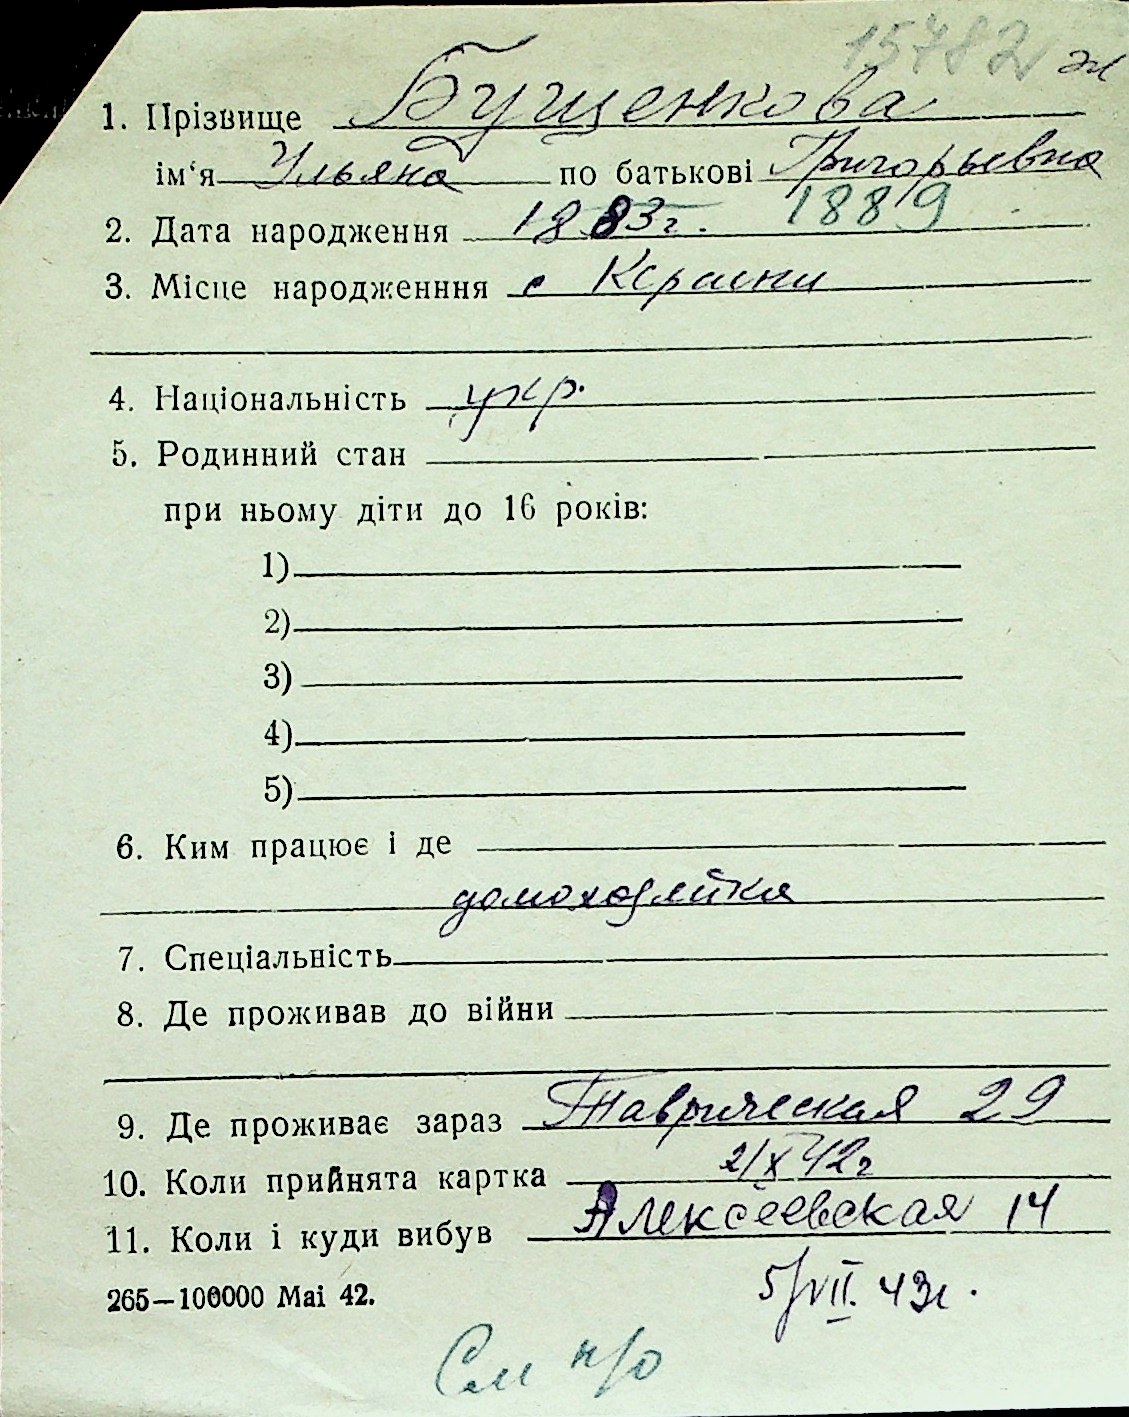 15782 эл
1. Прізвище Бущенкова
ім‘я Ульяна по батькові Григорьевна
2. Дата народження 1883г. 1889
3. Місце народженння с
4. Національність укр.
5. Родинний стан
при ньому діти до 16 років:
1)
2)
3)
4)
5)
6. Ким працює і де
домохозяйка
7. Спеціальність
8. Де проживав до війни
9. Де проживає зараз Таврическая 29
10. Коли прийнята картка 2/X 42г
11. Коли і куди вибув Алексеевская 14
265—100000 Маі 42. 5/VII. 43г.
См н/о